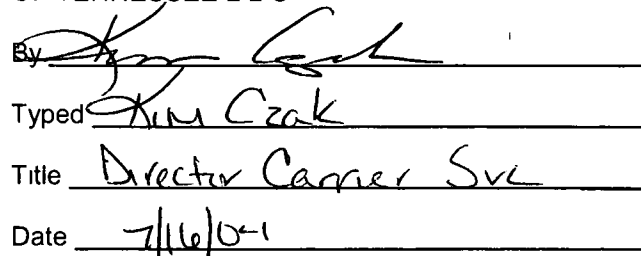 By
Typed Kim Czak
Title Director Carrier Svc
Date 7/16/04